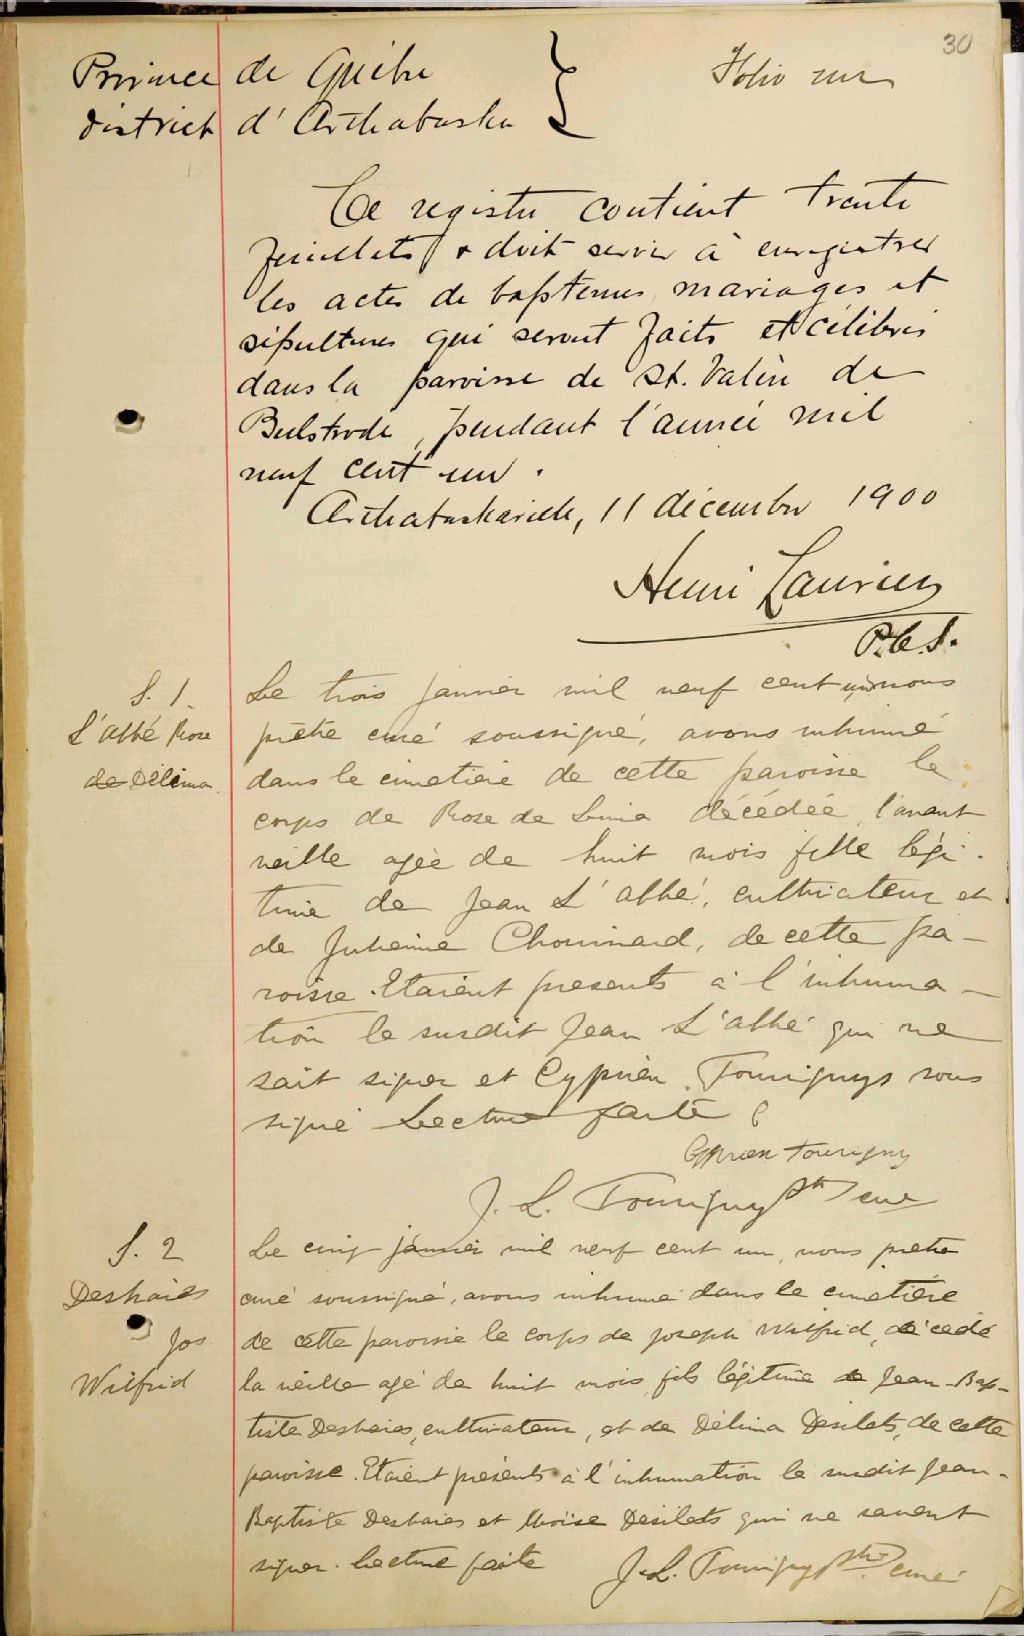 30
Province de Québec
Folio un
district d'Arthabaska
Ce registre contient trente
feuillets & doit servir à enregistrer
les actes de baptêmes, mariages et
sépultures qui seront faits et célébrés
dans la paroisse de St. Valère de
Bulstrode, pendant l'année mil
neuf cent un.
Arthabaskaville, 11 décembre 1900
Henri Laurier
P.C.S.
S. 1.
L'abbé Rose
de Délima
Le trois janvier mil neuf cent un nous
prêtre curé soussigné, avons inhumé
dans le cimetière de cette paroisse le
corps de Rose de Lima décédée l'avant
veille agée de huit mois fille légi-
time de Jean L'abbé, cultivateur et
de Julienne Chouinard, de cette pa-
roisse. Etaient présents à l'inhuma-
tion le susdit Jean L'abbé qui ne
sait signer et Cyprien Tourignys sous
signé Lecture faite
Cyprien Tourigny
J. L. Tourigny Ptre curé
S. 2
Deshaies
Jos
Wilfrid
Le cinq janvier mil neuf cent un, nous prêtre
curé soussigné, avons inhumé dans le cimetière
de cette paroisse le corps de Joseph Wilfrid, décédé
la veille agé de huit mois, fils légitime de Jean-Bap-
tiste Deshaies, cultivateur, et de Délima Desilets, de cette
paroisse. Etaient présents à l'inhumation le susdit Jean-
Baptiste Deshaies et Moïse Désilets qui ne savent
signer. Lecture faite
J.L. Tourigny Ptre. curé